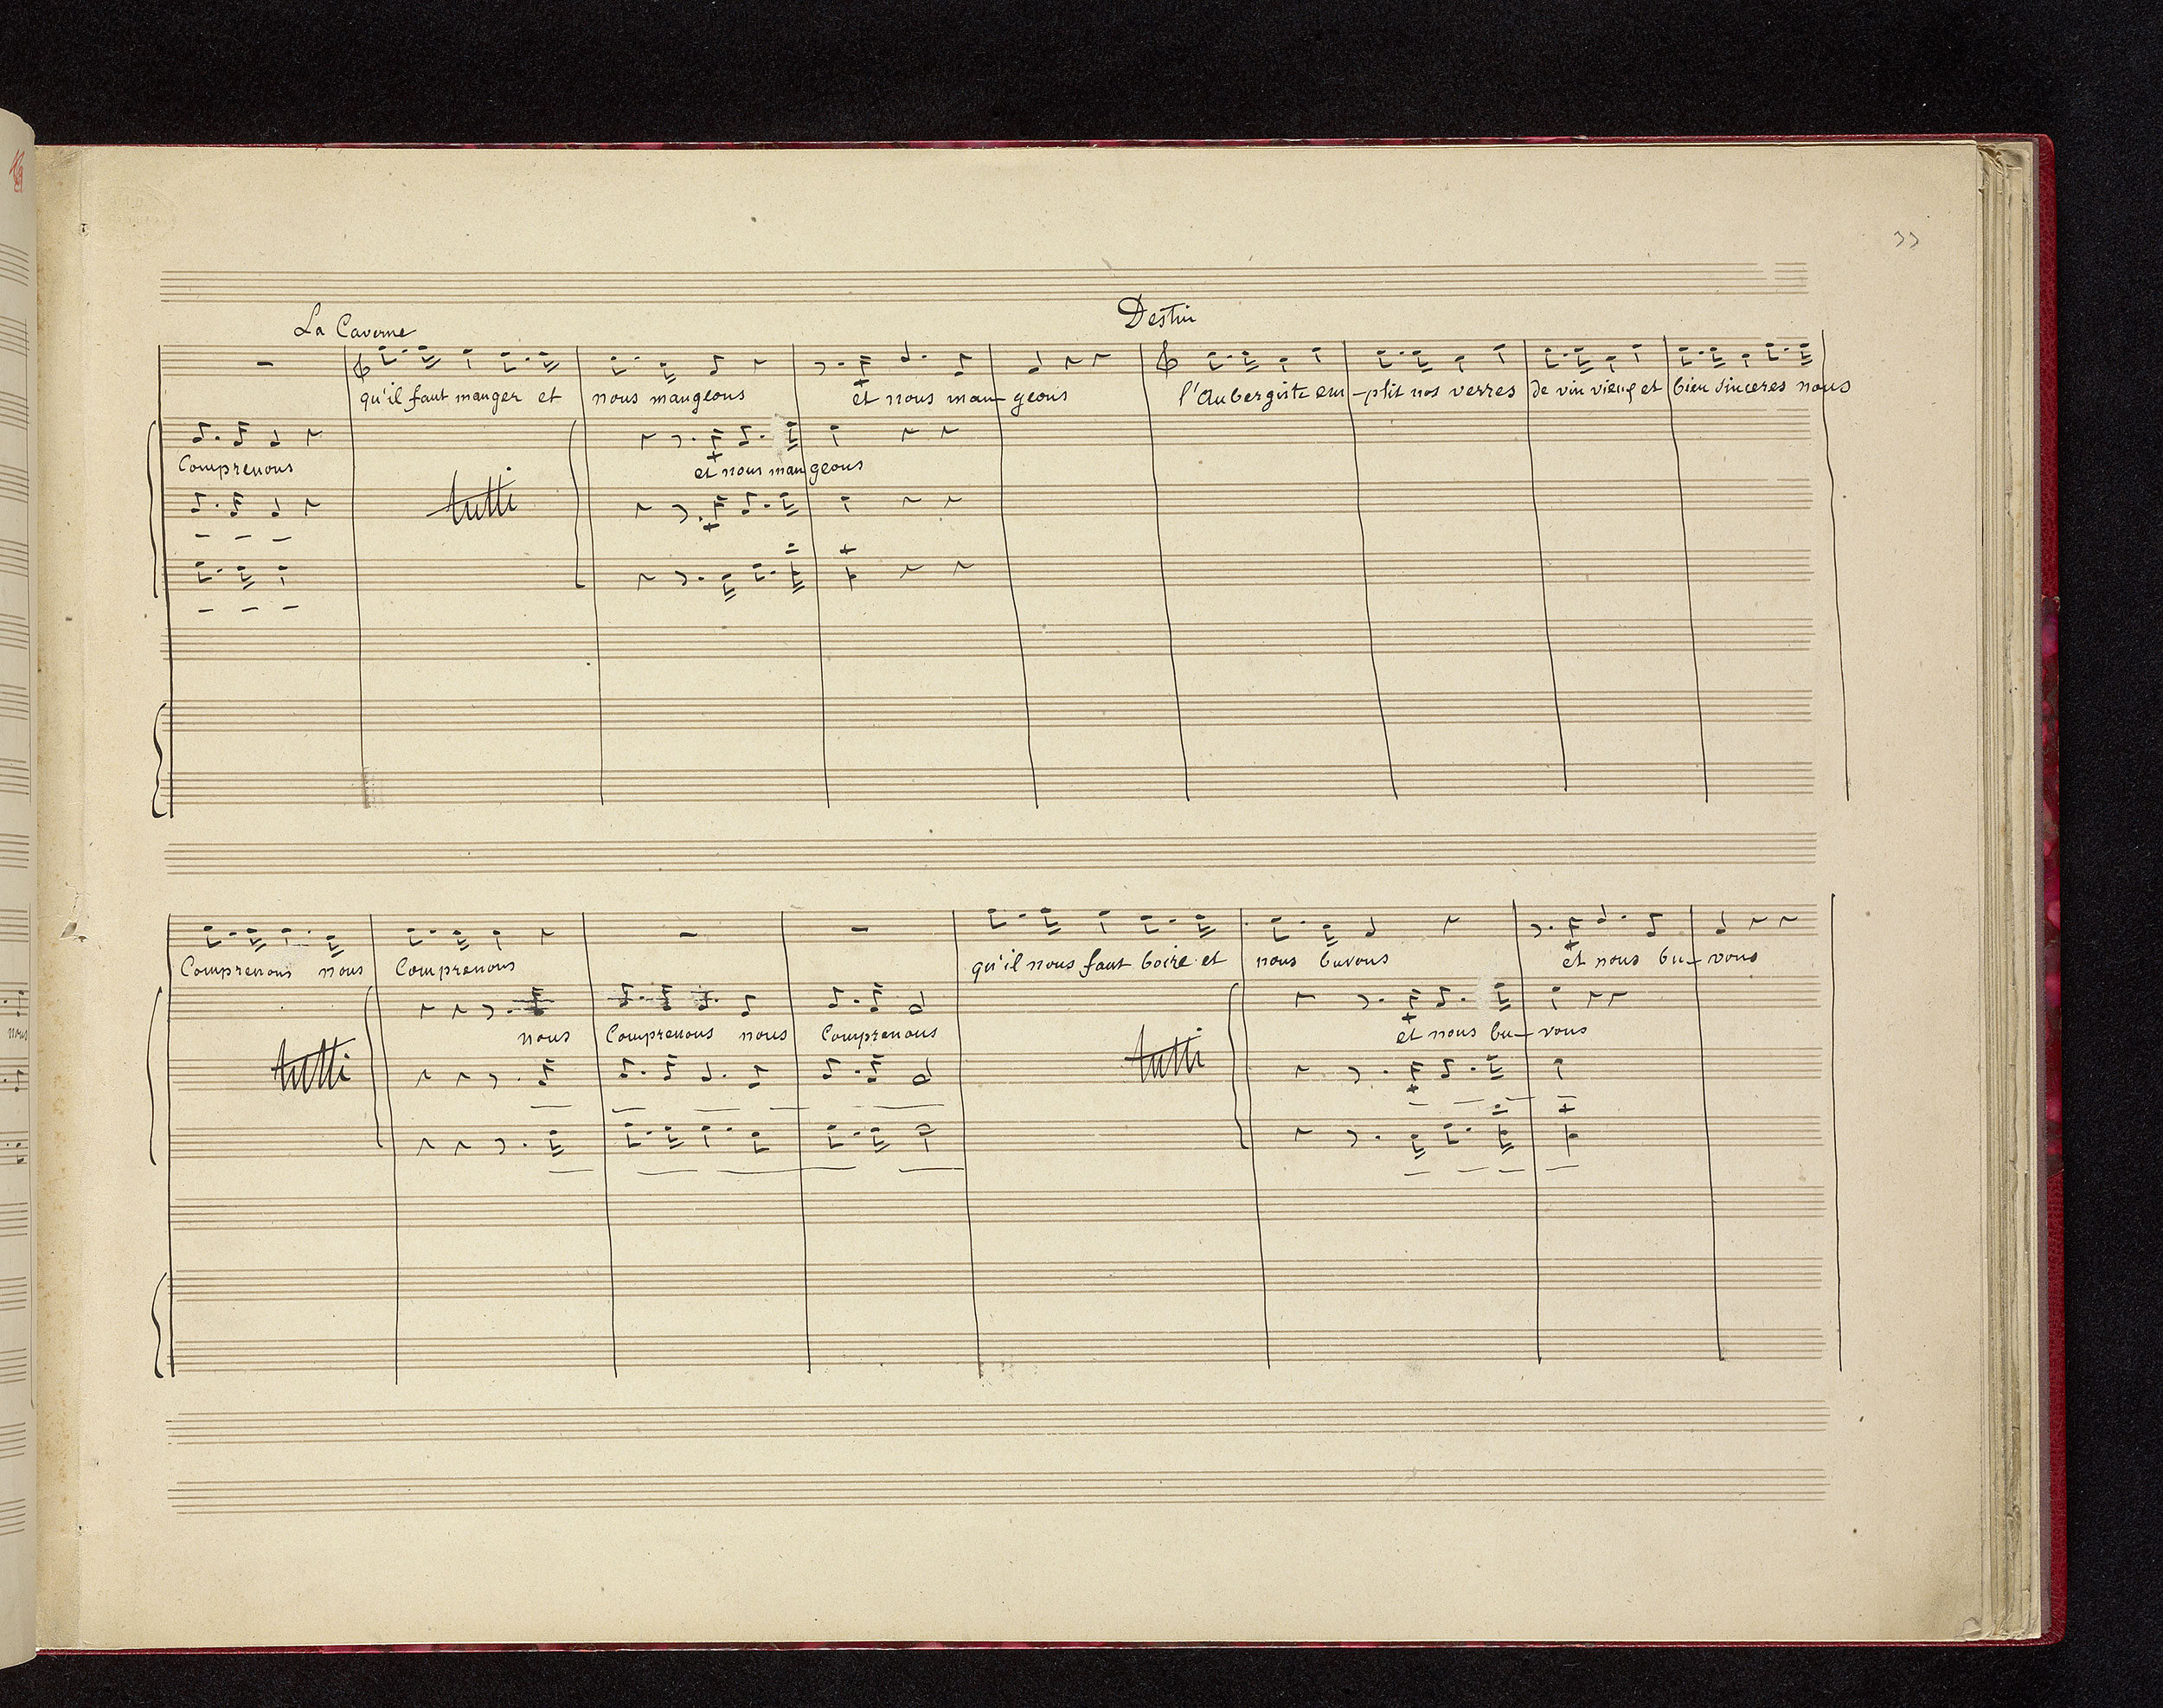 33
La Caverne
Destin
qu'il faut manger et nous mangeons et nous man- geons l'Aubergiste em -plit nos verres de vin vieux et bien sinceres nous
Comprenons
et nous mangeons
tutti
Comprenons nous Comprenons qu'il nous faut boire et nous buvons et nous bu- vons
nous Comprenons nous Comprenons
et nous bu- vons
tutti
tutti
nous